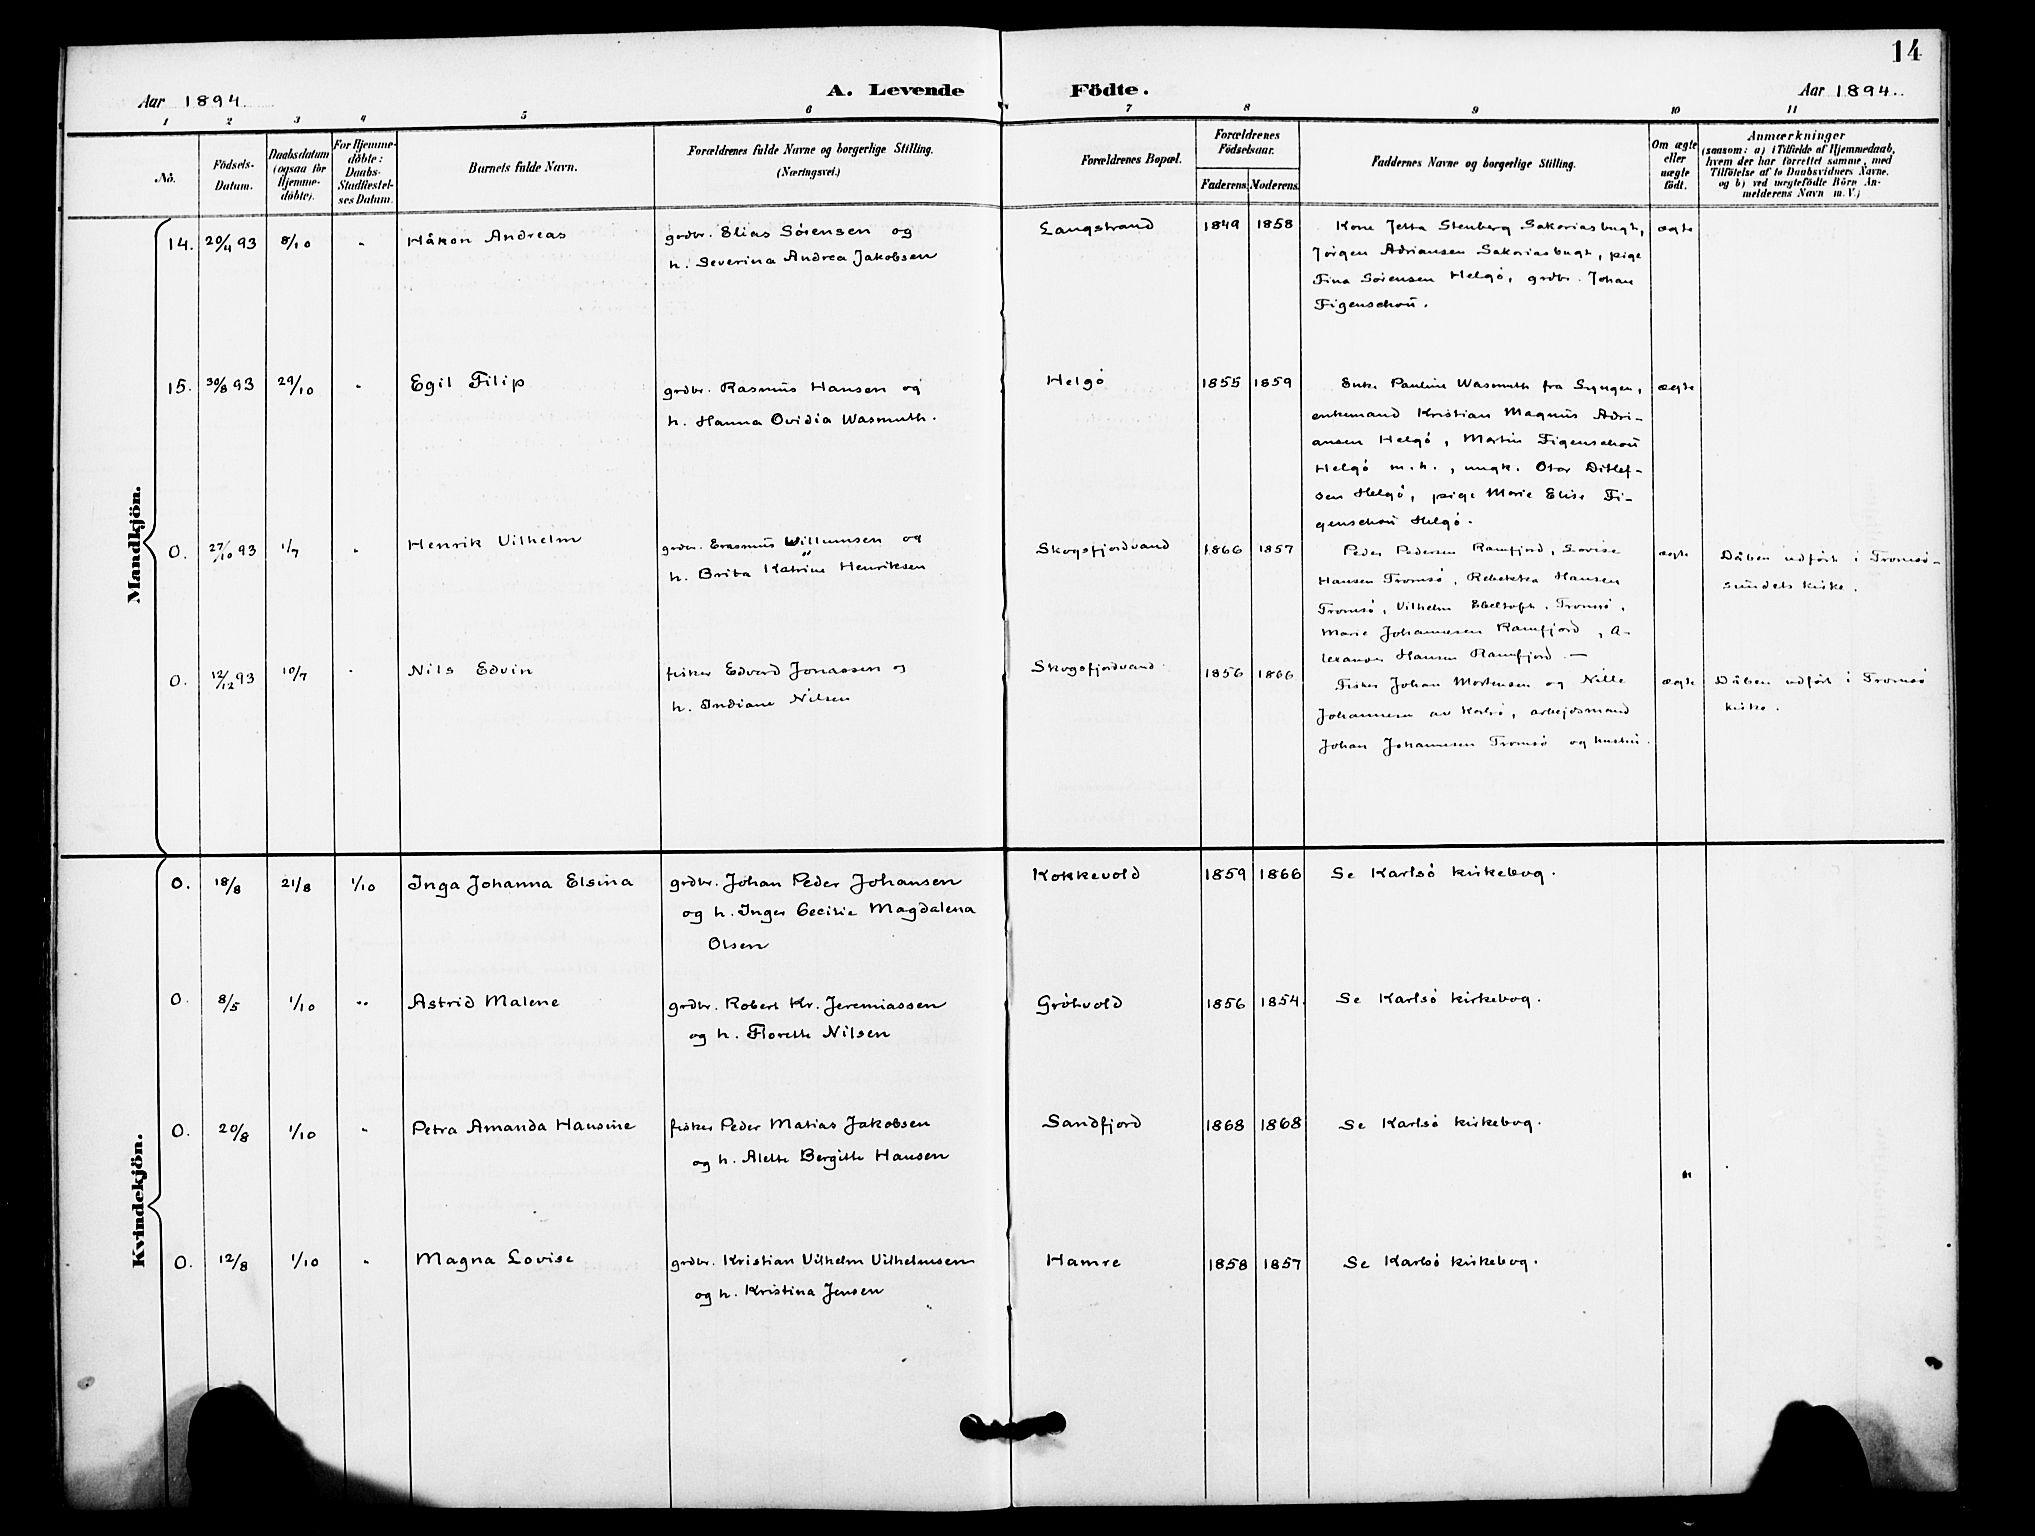 14
Aar 1894. A. Levende Födte. Aar 1894.
1 2 3 4 5 6 7 8 9 10 11
No.
Födsels-
Datum.
Daabsdatum
(ogsaa for
Hjemme-
döbte).
For Hjemme-
döbte:
Daabs-
Stadfæstel-
ses Datum.
Barnets fulde Navn.
Forældrenes fulde Navne og borgerlige Stilling.
(Næringsvei.)
Forældrenes Bopæl.
Forældrenes
Födselsaar.
Faderens. Moderens.
Faddernes Navne og borgerlige Stilling.
Om ægte
eller
uægte
födt.
Anmærkninger
(saasom: a) i Tilfælde af Hjemmedaab,
hvem der har forrettet samme, med
Tilföielse af to Daabsvidners Navne.
og b) ved uægtefödte Börn An-
melderens Navn m. V.)
Mandkjön.
14. 20/4 93 8/10 " Håkon Andreas
grdbr. Elias Sörensen og
h. Severina Andrea Jakobsen
Langstrand 1849 1858
Kone Jetta Stenberg Sakariasbugt,
Jörgen Adriansen Sakariasbugt, pige
Tina Sörensen Helgö, grdbr. Johan
Figenschou.
ægte
15. 30/8 93 29/10 " Egil Filip
grdbr. Rasmus Hansen og
h. Hanna Ovidia Wasmuth.
Helgö 1855 1859
Enke Pauline Wasmuth fra Lyngen,
enkemand Kristian Magnus Adri-
ansen Helgö, Martin Figenschou
Helgö m. h., ungk. Otar Ditlef-
sen Helgö, pige Marie Elise Fi-
genschou Helgö.
ægte
0. 27/10 93 1/7 " Henrik Vilhelm
grdbr. Erasmus Willumsen og
h. Brita Katrine Henriksen
Skogsfjordvand 1866 1857
Peder Pedersen Ramfjord, Lovise
Hansen Tromsö, Rebekka Hansen
Tromsö, Vilhelm Ebeltoft, Tromsö,
Marie Johannesen Ramfjord, A-
lexander Hansen Ramfjord. —
ægte
Dåben udfört i Tromsö-
sundets kirke.
0. 12/12 93 10/7 " Nils Edvin
fisker Edvard Jonassen og
h. Indiane Nilsen
Skogsfjordvand. 1856 1866
Fisker Johan Mortensen og Nille
Johannesen av Karlsö, arbejdsmand
Johan Johannesen Tromsö og hustru.
ægte
Dåben udfört i Tromsö
kirke.
Kvindekjön.
0. 18/8 21/8 1/10 Inga Johanna Elsina
grdbr. Johan Peder Johansen
og h. Inger Cecilie Magdalena
Olsen
Kokkevold 1859 1866 Se Karlsö kirkebog.
0. 8/5 1/10 " Astrid Malene
grdbr. Robert Kr. Jeremiassen
og h. Florette Nilsen
Gröhvold 1856 1854. Se Karlsö kirkebog.
0. 20/8 1/10 " Petra Amanda Hansine
fisker Peder Matias Jakobsen
og h. Alette Bergitte Hansen
Sandfjord 1868 1868 Se Karlsö kirkebog.
0. 12/8 1/10 " Magna Lovise
grdbr. Kristian Vilhelm Vilhelmsen
og h. Kristina Jensen
Hamre 1858 1857 Se Karlsö kirkebog.